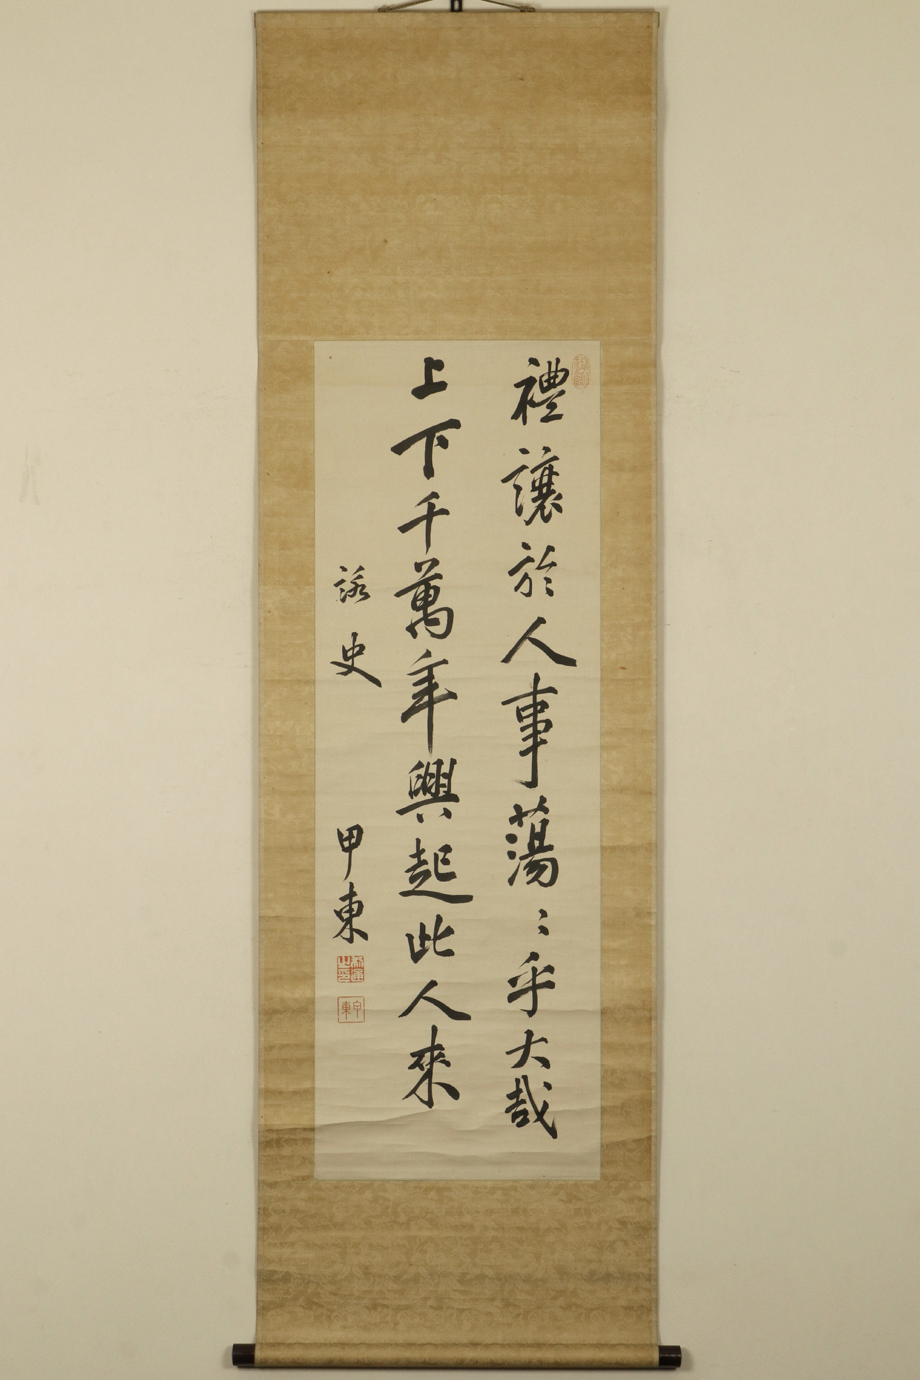 禮讓於人事蕩〻乎大哉
上下千萬年興起此人來
詠史
甲東